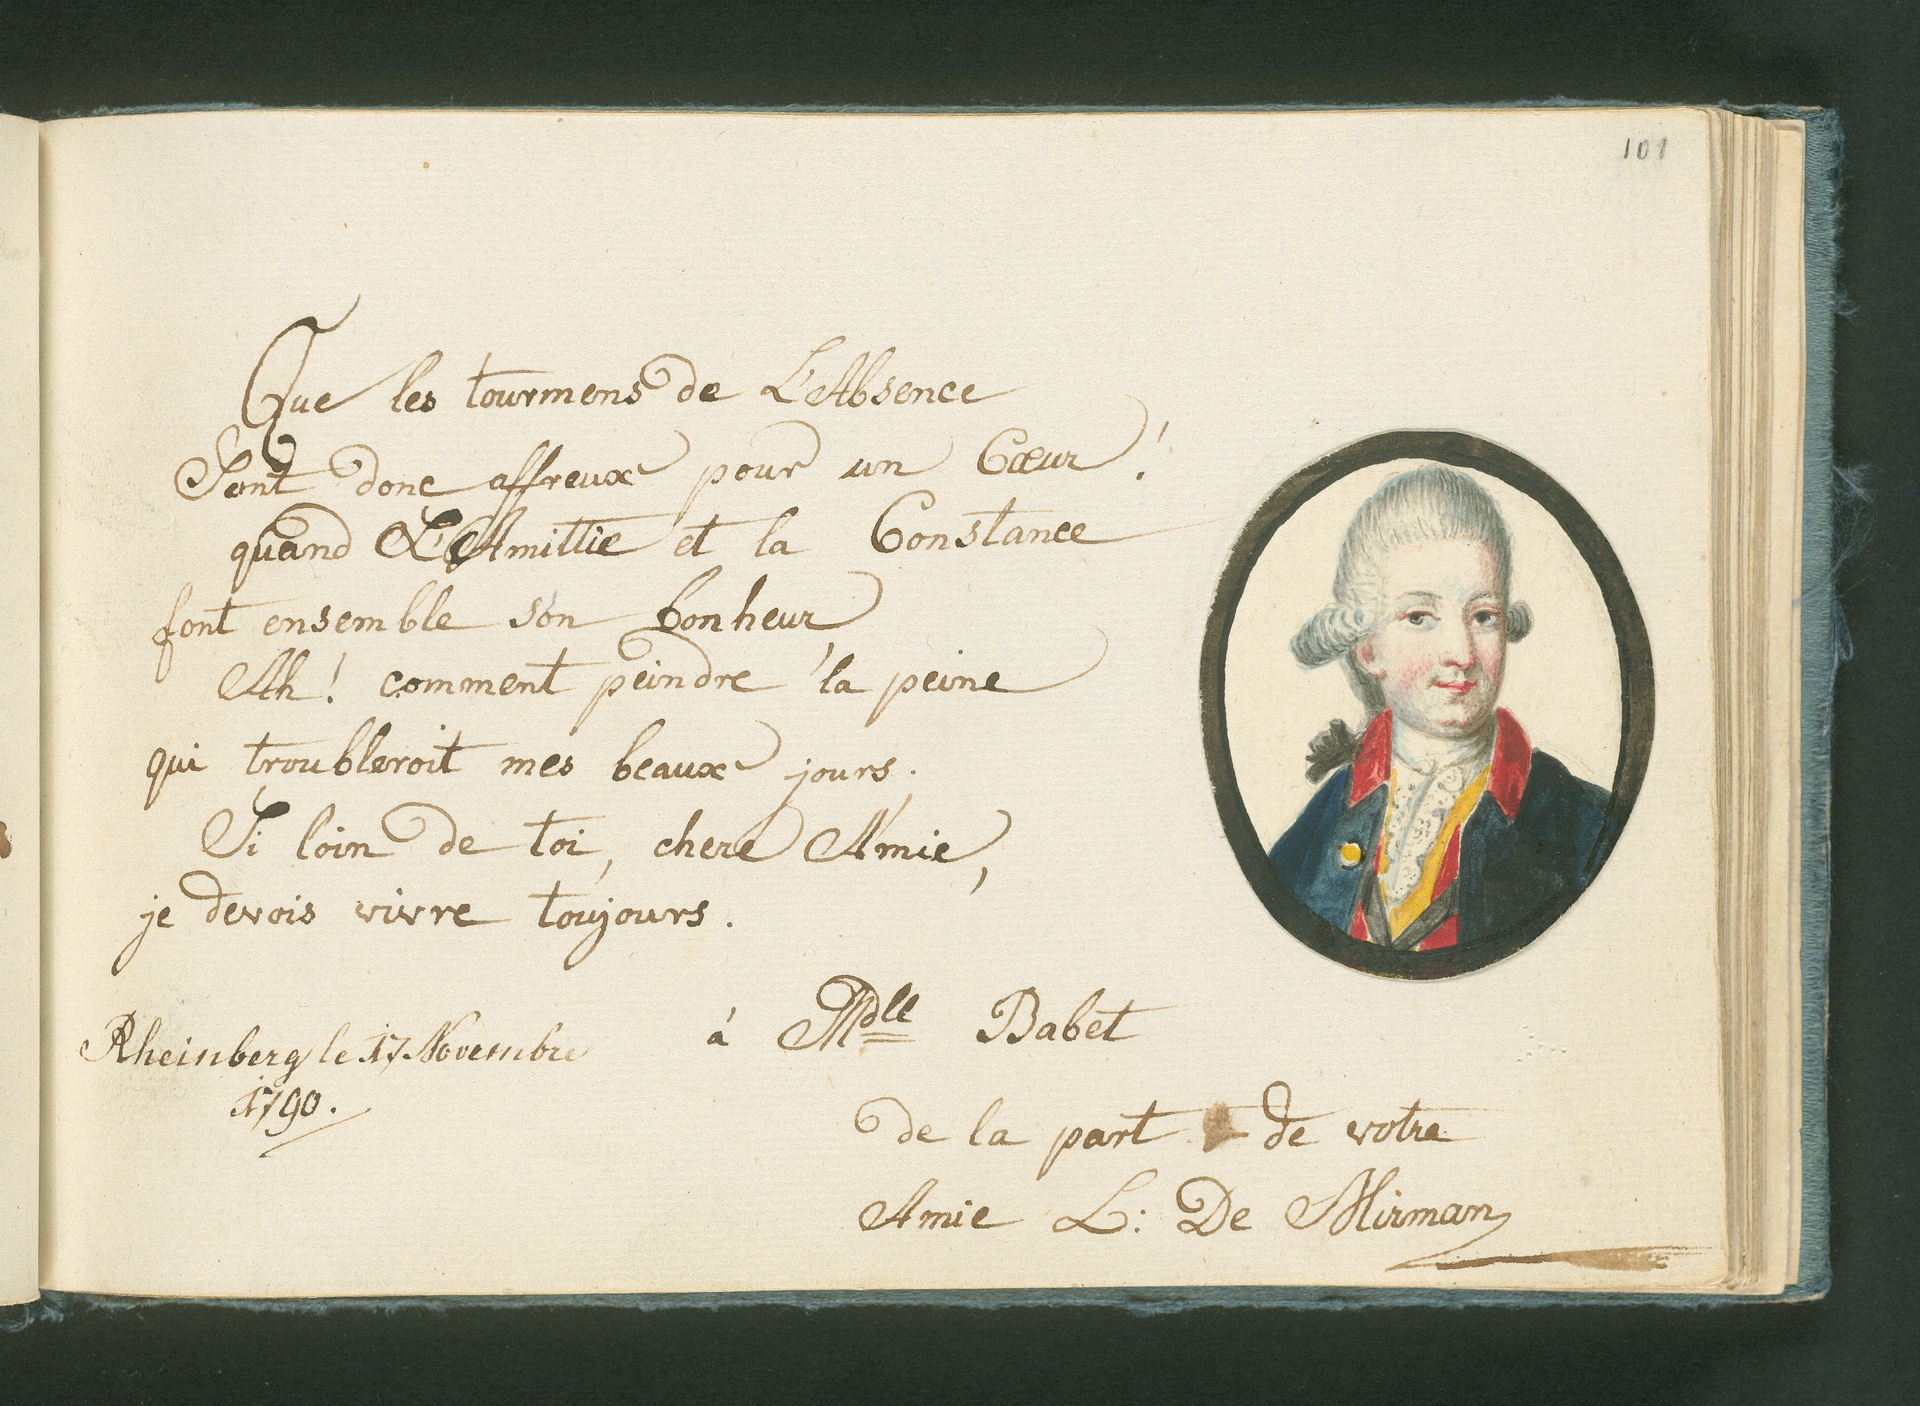 101
Que les tourmens de L'Absence
Sont donc affreux pour un Cœur!
quand L'Amittie et la Constance
font ensemble son bonheur
Ah! comment peindre la peine
qui troubleroit mes beaux jours.
Si loin de toi, chere Amie,
je devois vivre toujours.
Rheinberg le 17 Novembre
1790.
á Mdlle Babet
de la part de votre
Amie L: De Mirman